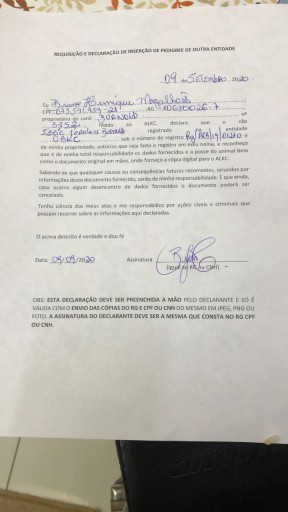 REQUISIÇÃO E DECLARAÇÃO DE INSERÇÃO DE PEDIGREE DE OUTRA ENTIDADE
09 de SETEMBRO 2020.
Eu Bruno Henrique Magalhães
CPF 073.571.959-21 RG 10670026-7
proprietário do canil BURNOLD nº
335 filiado ao ALKC, declaro que o cão
registrado entidade
CBKC sob o número de registro
de minha propriedade, autorizo que seja feito o registro em meu nome, e reconheço
que é de minha total responsabilidade os dados fornecidos e a posse do animal bem
como o documento original em mãos, onde forneço a cópia digital para o ALKC.
Sabendo-se que quaisquer causas ou consequências futuras recorrentes, oriundas por
informações deste documento fornecido, serão de minha responsabilidade. E que ainda,
caso ocorra algum desencontro de dados fornecidos o documento poderá ser
cancelado.
Tenho ciência dos meus atos e me responsabilizo por ações cíveis e criminais que
possam recorrer sobre as informações aqui declaradas.
O acima descrito é verdade e dou fé
Data: 09/09/2020 Assinatura:
(igual ao RG ou CNH)
OBS: ESTA DECLARAÇÃO DEVE SER PREENCHIDA A MÃO PELO DECLARANTE E SÓ É
VÁLIDA COM O ENVIO DAS CÓPIAS DO RG E CPF OU CNH DO MESMO EM JPEG, PNG OU
FOTO. A ASSINATURA DO DECLARANTE DEVE SER A MESMA QUE CONSTA NO RG CPF
OU CNH.